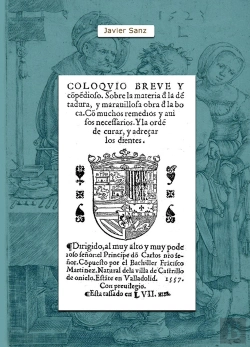 Javier Sanz
COLOQVIO BREVE Y
cõpẽdioso. Sobre la materia đ la đ
tadura, y marauillosa obra đ la bo
ca. Cõ muchos remedios y aui
sos necessarios. Y la ordẽ
de curar, y adreçar
los dientes.
¶Dirigido, al muy alto y muy pode
roso señor: el Principe dõ Carlos nr̃o se-
ñor. Cõpuesto por el Bachiller Frãcisco
Martinez. Natural dela villa de Castrillo
de onielo. Estãte en Valladolid. 1557.
Con preuilegio.
¶Esta tassado en LVII. mr̃s